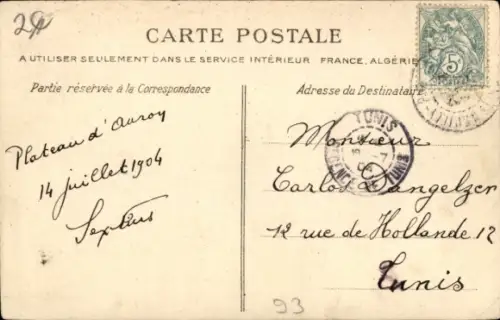 29
CARTE POSTALE
A UTILISER SEULEMENT DANS LE SERVICE INTÉRIEUR FRANCE, ALGÉRIE
Partie réservée à la Correspondance
Adresse du Destinataire
5
TUNIS
TUNIS
Plateau d'Auron
14 juillet 1904
Monsieur
Carlos
12 rue de Hollande 12
Tunis
93